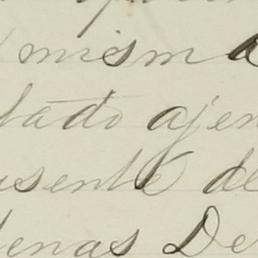 misma
tado ajen
usente de
denas De